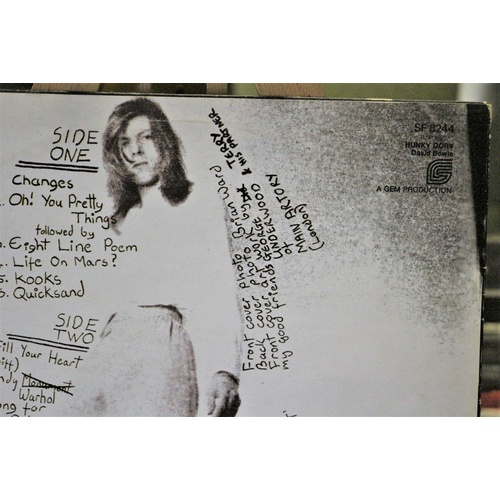 SIDE
ONE
Changes
Oh! You Pretty
Things
followed by
Eight Line Poem
Life On Mars?
Kooks
Quicksand
SIDE
TWO
Fill Your Heart
Warhol
Front cover photo Brian Ward
Back cover photo
Front cover art work
my good friends GEORGE
UNDERWOOD
TERRY
& HIS PARTNER
of
MAIN ARTORY
(London)
SF 8244
HUNKY DORY
David Bowie
A GEM PRODUCTION